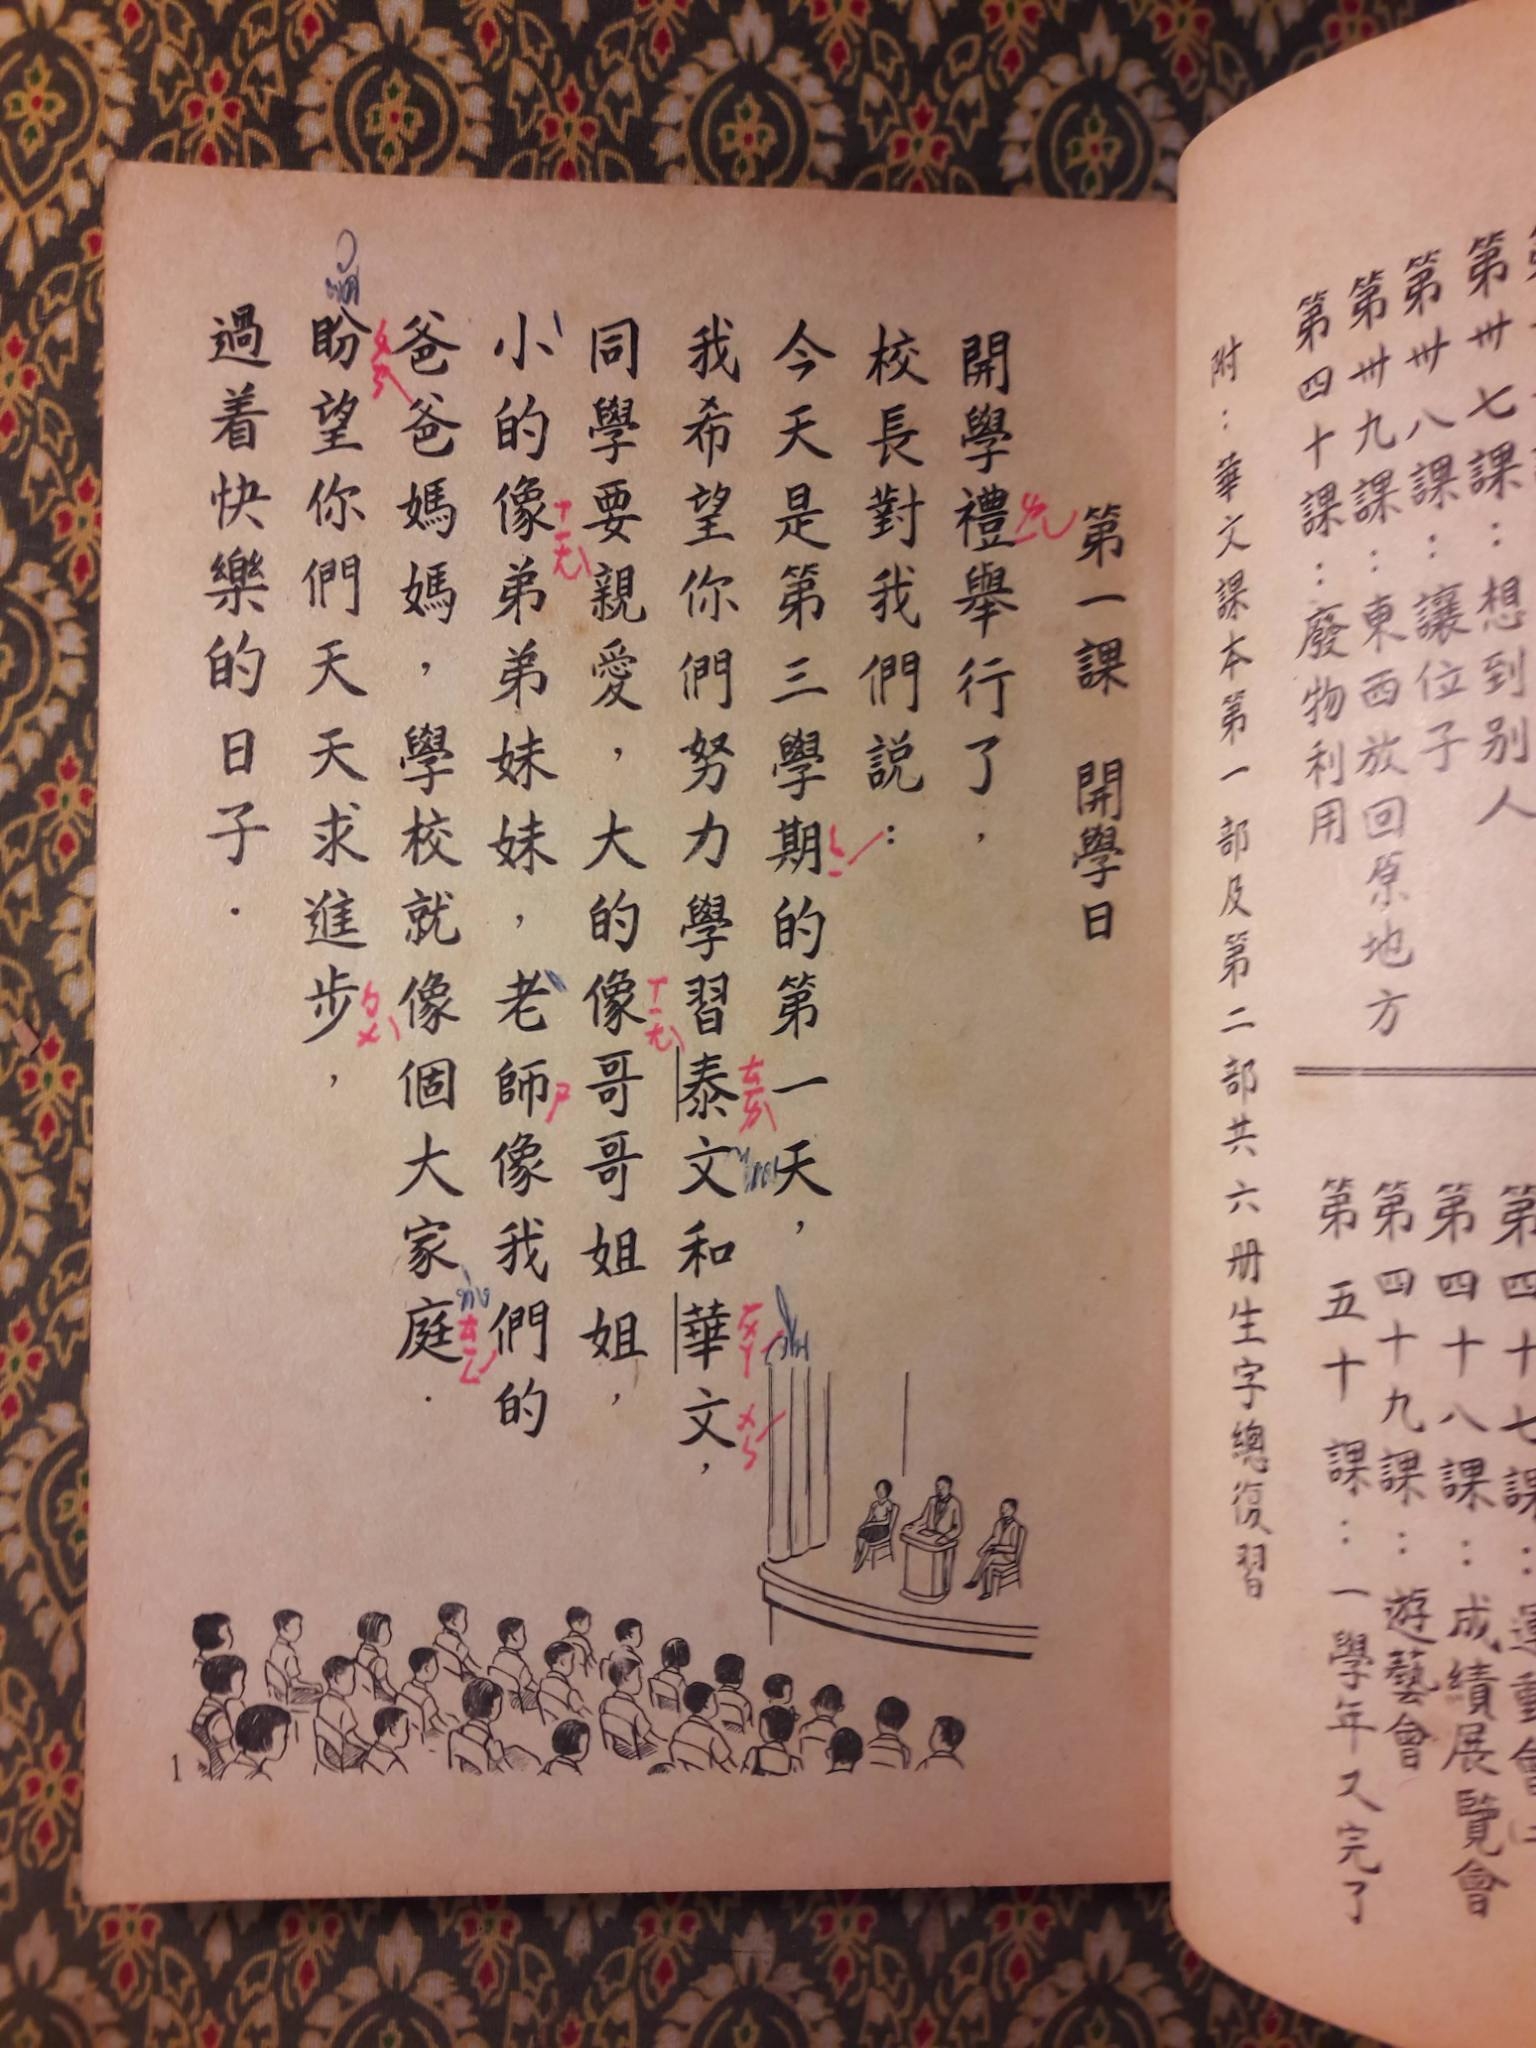 第一課　開學日
開學禮舉行了，
校長對我們説：
今天是第三學期的第一天，
我希望你們努力學習泰文和華文，
同學要親愛，大的像哥哥姐姐，
小的像弟弟妹妹，老師像我們的
爸爸媽媽，學校就像個大家庭．
盼望你們天天求進步，
過着快樂的日子．
ㄑㄧˊ
ㄊㄞˋ
ㄨㄣˊ
ㄒㄧㄤˋ
ㄒㄧㄤˋ
ㄕ
ㄊㄧㄥˊ
ㄆㄢˋ
ㄅㄨˋ
1
第卅七課：想到别人
第卅八課：讓位子
第卅九課：東西放回原地方
第四十課：廢物利用
第四十八課：成績展覽會
第四十九課：遊藝會
第五十課：一學年又完了
附：華文課本第一部及第二部共六册生字總復習